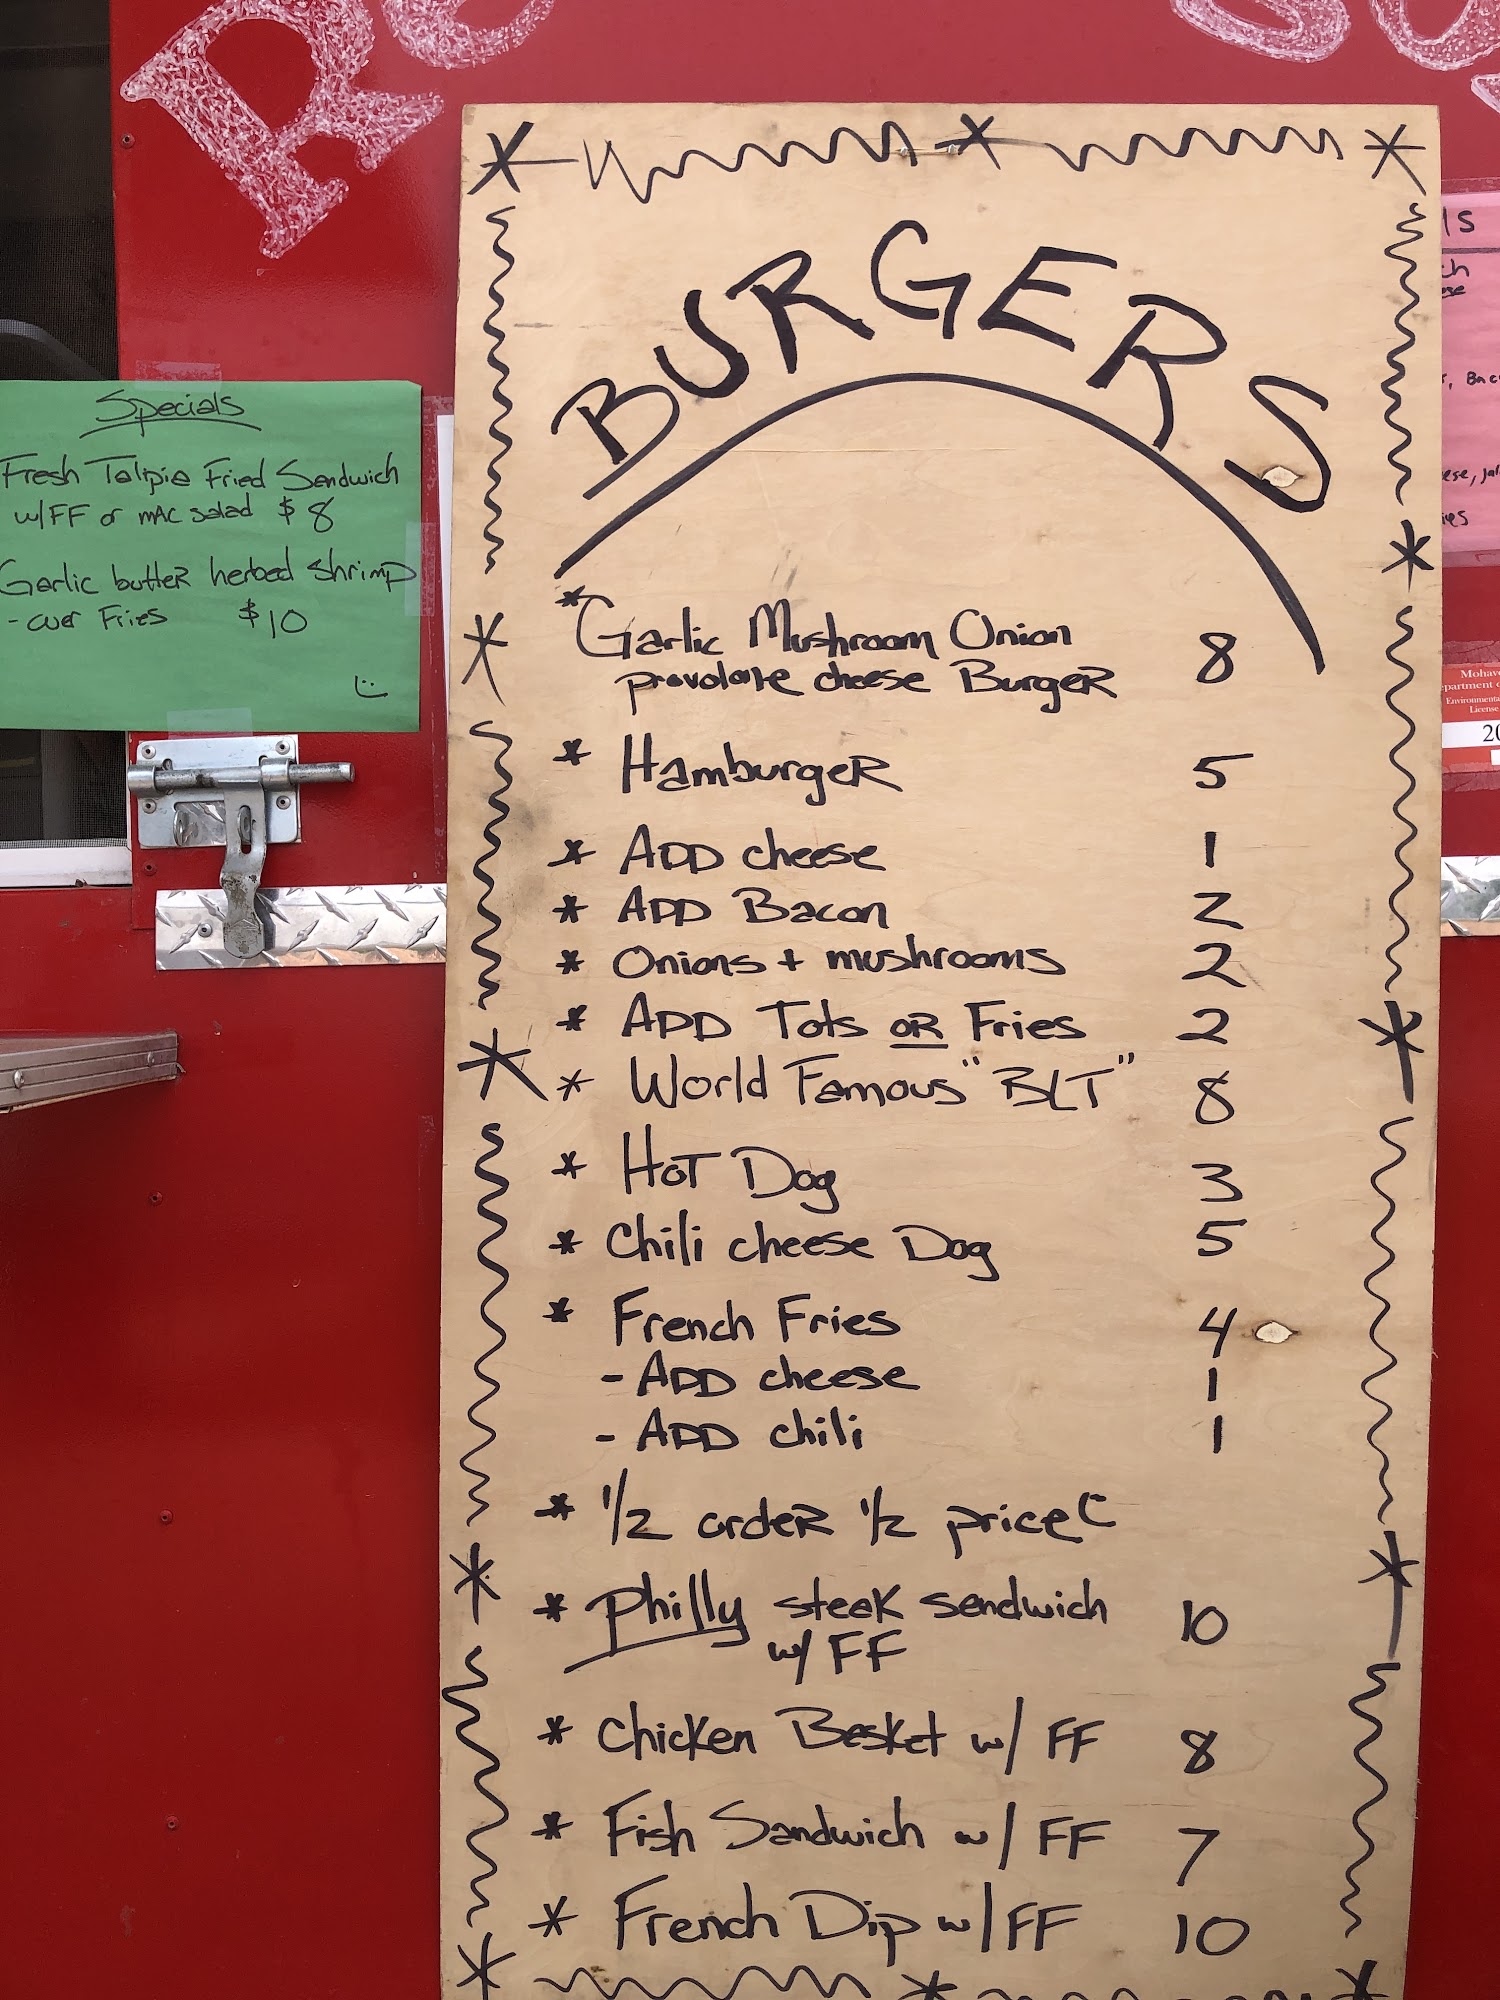 Specials
Fresh Talipia Fried Sandwich
w/FF or mac salad $8
Garlic butter herbed shrimp
- over Fries $10
BURGERS
* Garlic Mushroom Onion 8
provolate cheese Burger
* Hamburger 5
* ADD cheese 1
* ADD Bacon 2
* Onions + mushrooms 2
* ADD Tots OR Fries 2
* World Famous "BLT" 8
* HOT Dog 3
* Chili cheese Dog 5
* French Fries 4
- ADD cheese 1
- ADD chili 1
* 1/2 order 1/2 price
* Philly steak sandwich 10
w/ FF
* Chicken Basket w/ FF 8
* Fish Sandwich w/ FF 7
* French Dip w/ FF 10
Environmental
License